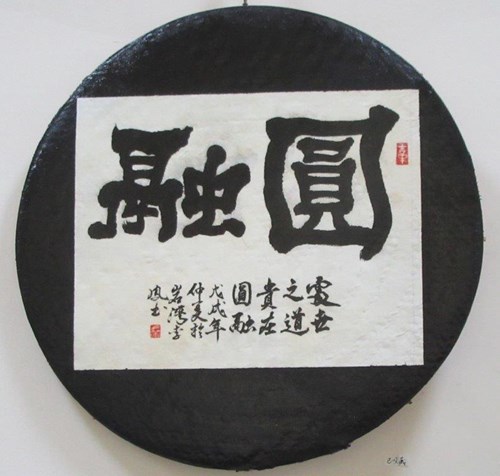 圓融
處世
之道
貴在
圓融
戊戌年
仲夏於
岩灣李